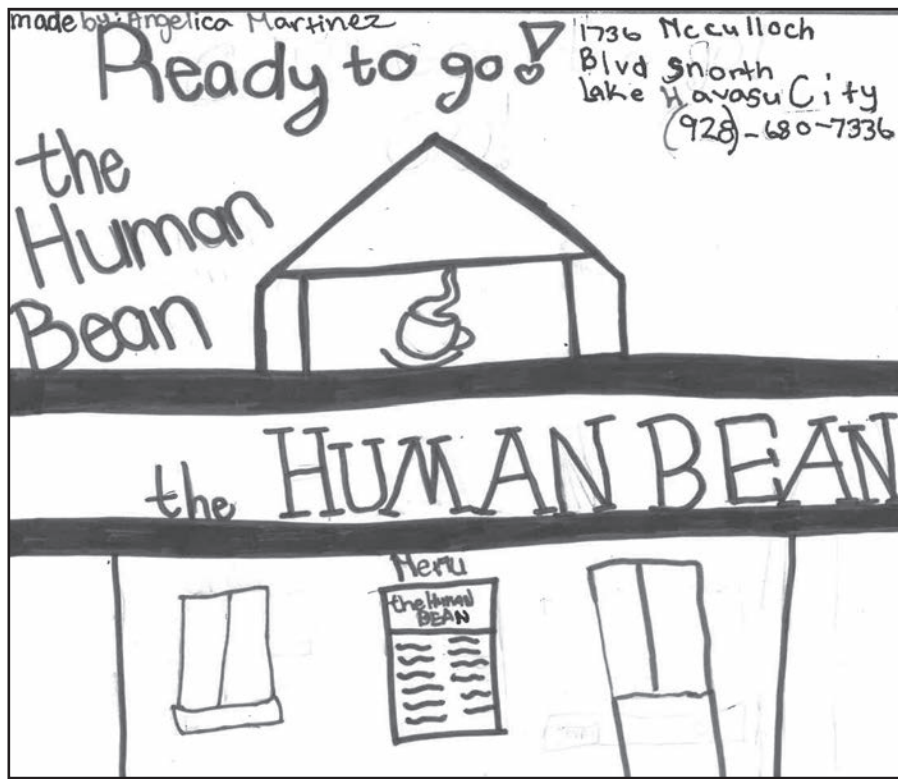 made by: Angelica Martinez
Ready to go!
1736 Mcculloch
Blvd Snorth
Lake Havasu City
(928)-680-7336
the
Human
Bean
the HUMAN BEAN
Menu
the Human
BEAN